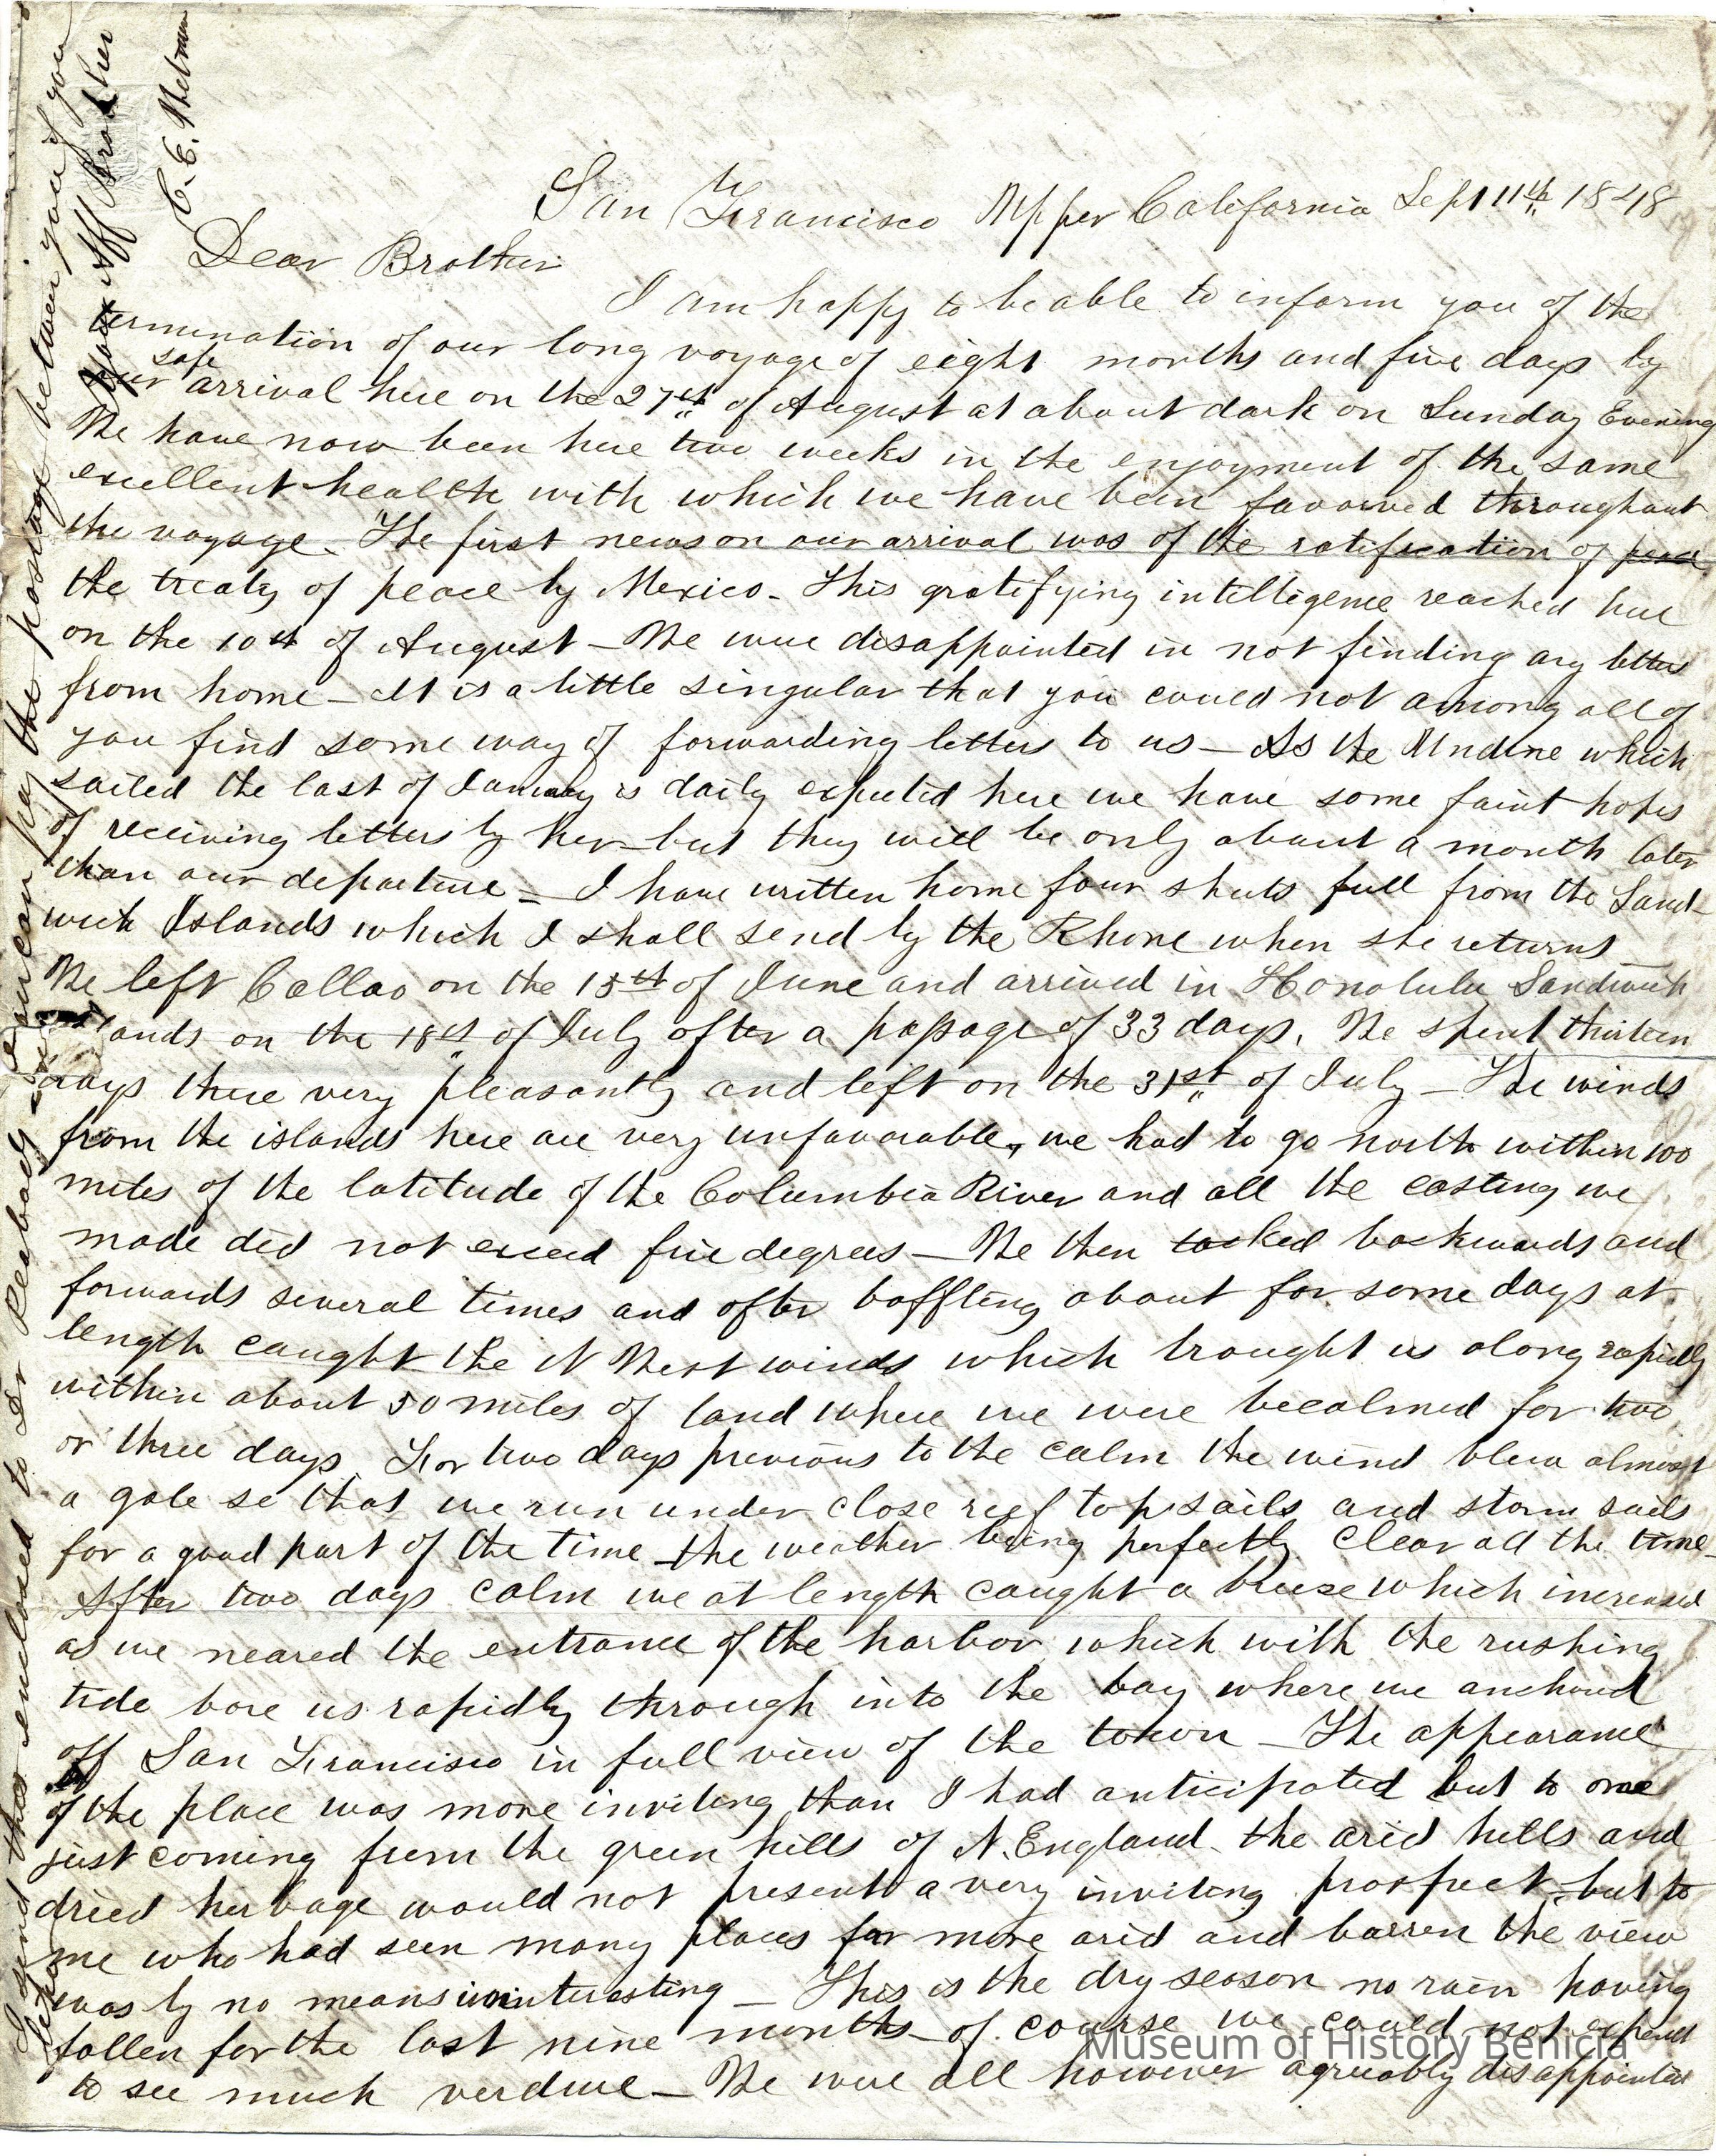 San Francisco Upper California Sept 11th 1848
Dear Brother
I am happy to be able to inform you of the
termination of our long voyage of eight months and five days by
our safe arrival here on the 27th of August at about dark on Sunday Evening
We have now been here two weeks in the enjoyment of the same
excellent health with which we have been favored throughout
the voyage. The first news on our arrival was of the ratification of peace
the treaty of peace by Mexico - This gratifying intelligence reached here
on the 10th of August - We were disappointed in not finding any letters
from home - It is a little singular that you could not among all of
you find some way of forwarding letters to us - As the Undine which
sailed the last of January is daily expected here we have some faint hopes
of receiving letters by her but they will be only about a month later
than our departure - I have written home four sheets full from the Sand-
wich Islands which I shall send by the Rhone when she returns
We left Callao on the 15th of June and arrived in Honolulu Sandwich
Islands on the 18th of July after a passage of 33 days. We spent thirteen
days there very pleasantly and left on the 31st of July - The winds
from the islands here are very unfavorable, we had to go north within 100
miles of the latitude of the Columbia River and all the easting we
made did not exceed five degrees - We then tacked backwards and
forwards several times and after baffling about for some days at
length caught the N West winds which brought us along rapidly
within about 50 miles of land where we were becalmed for two
or three days. For two days previous to the calm the wind blew almost
a gale so that we run under close reef topsails and storm sails
for a good part of the time - the weather being perfectly clear all the time -
After two days calm we at length caught a breeze which increased
as we neared the entrance of the harbor which with the rushing
tide bore us rapidly through into the bay where we anchored
off San Francisco in full view of the town - The appearance
of the place was more inviting than I had anticipated but to one
just coming from the green hills of N. England the arid hills and
dried herbage would not present a very inviting prospect - but to
me who had seen many places far more arid and barren the view
was by no means uninteresting - This is the dry season no rain having
fallen for the last nine months - of course we could not expect
to see much verdure - We were all however agreeably disappointed
I send this enclosed to Dr Peabody - you can pay the postage between you if you
Your Aff Brother
C. E.
Museum of History Benicia